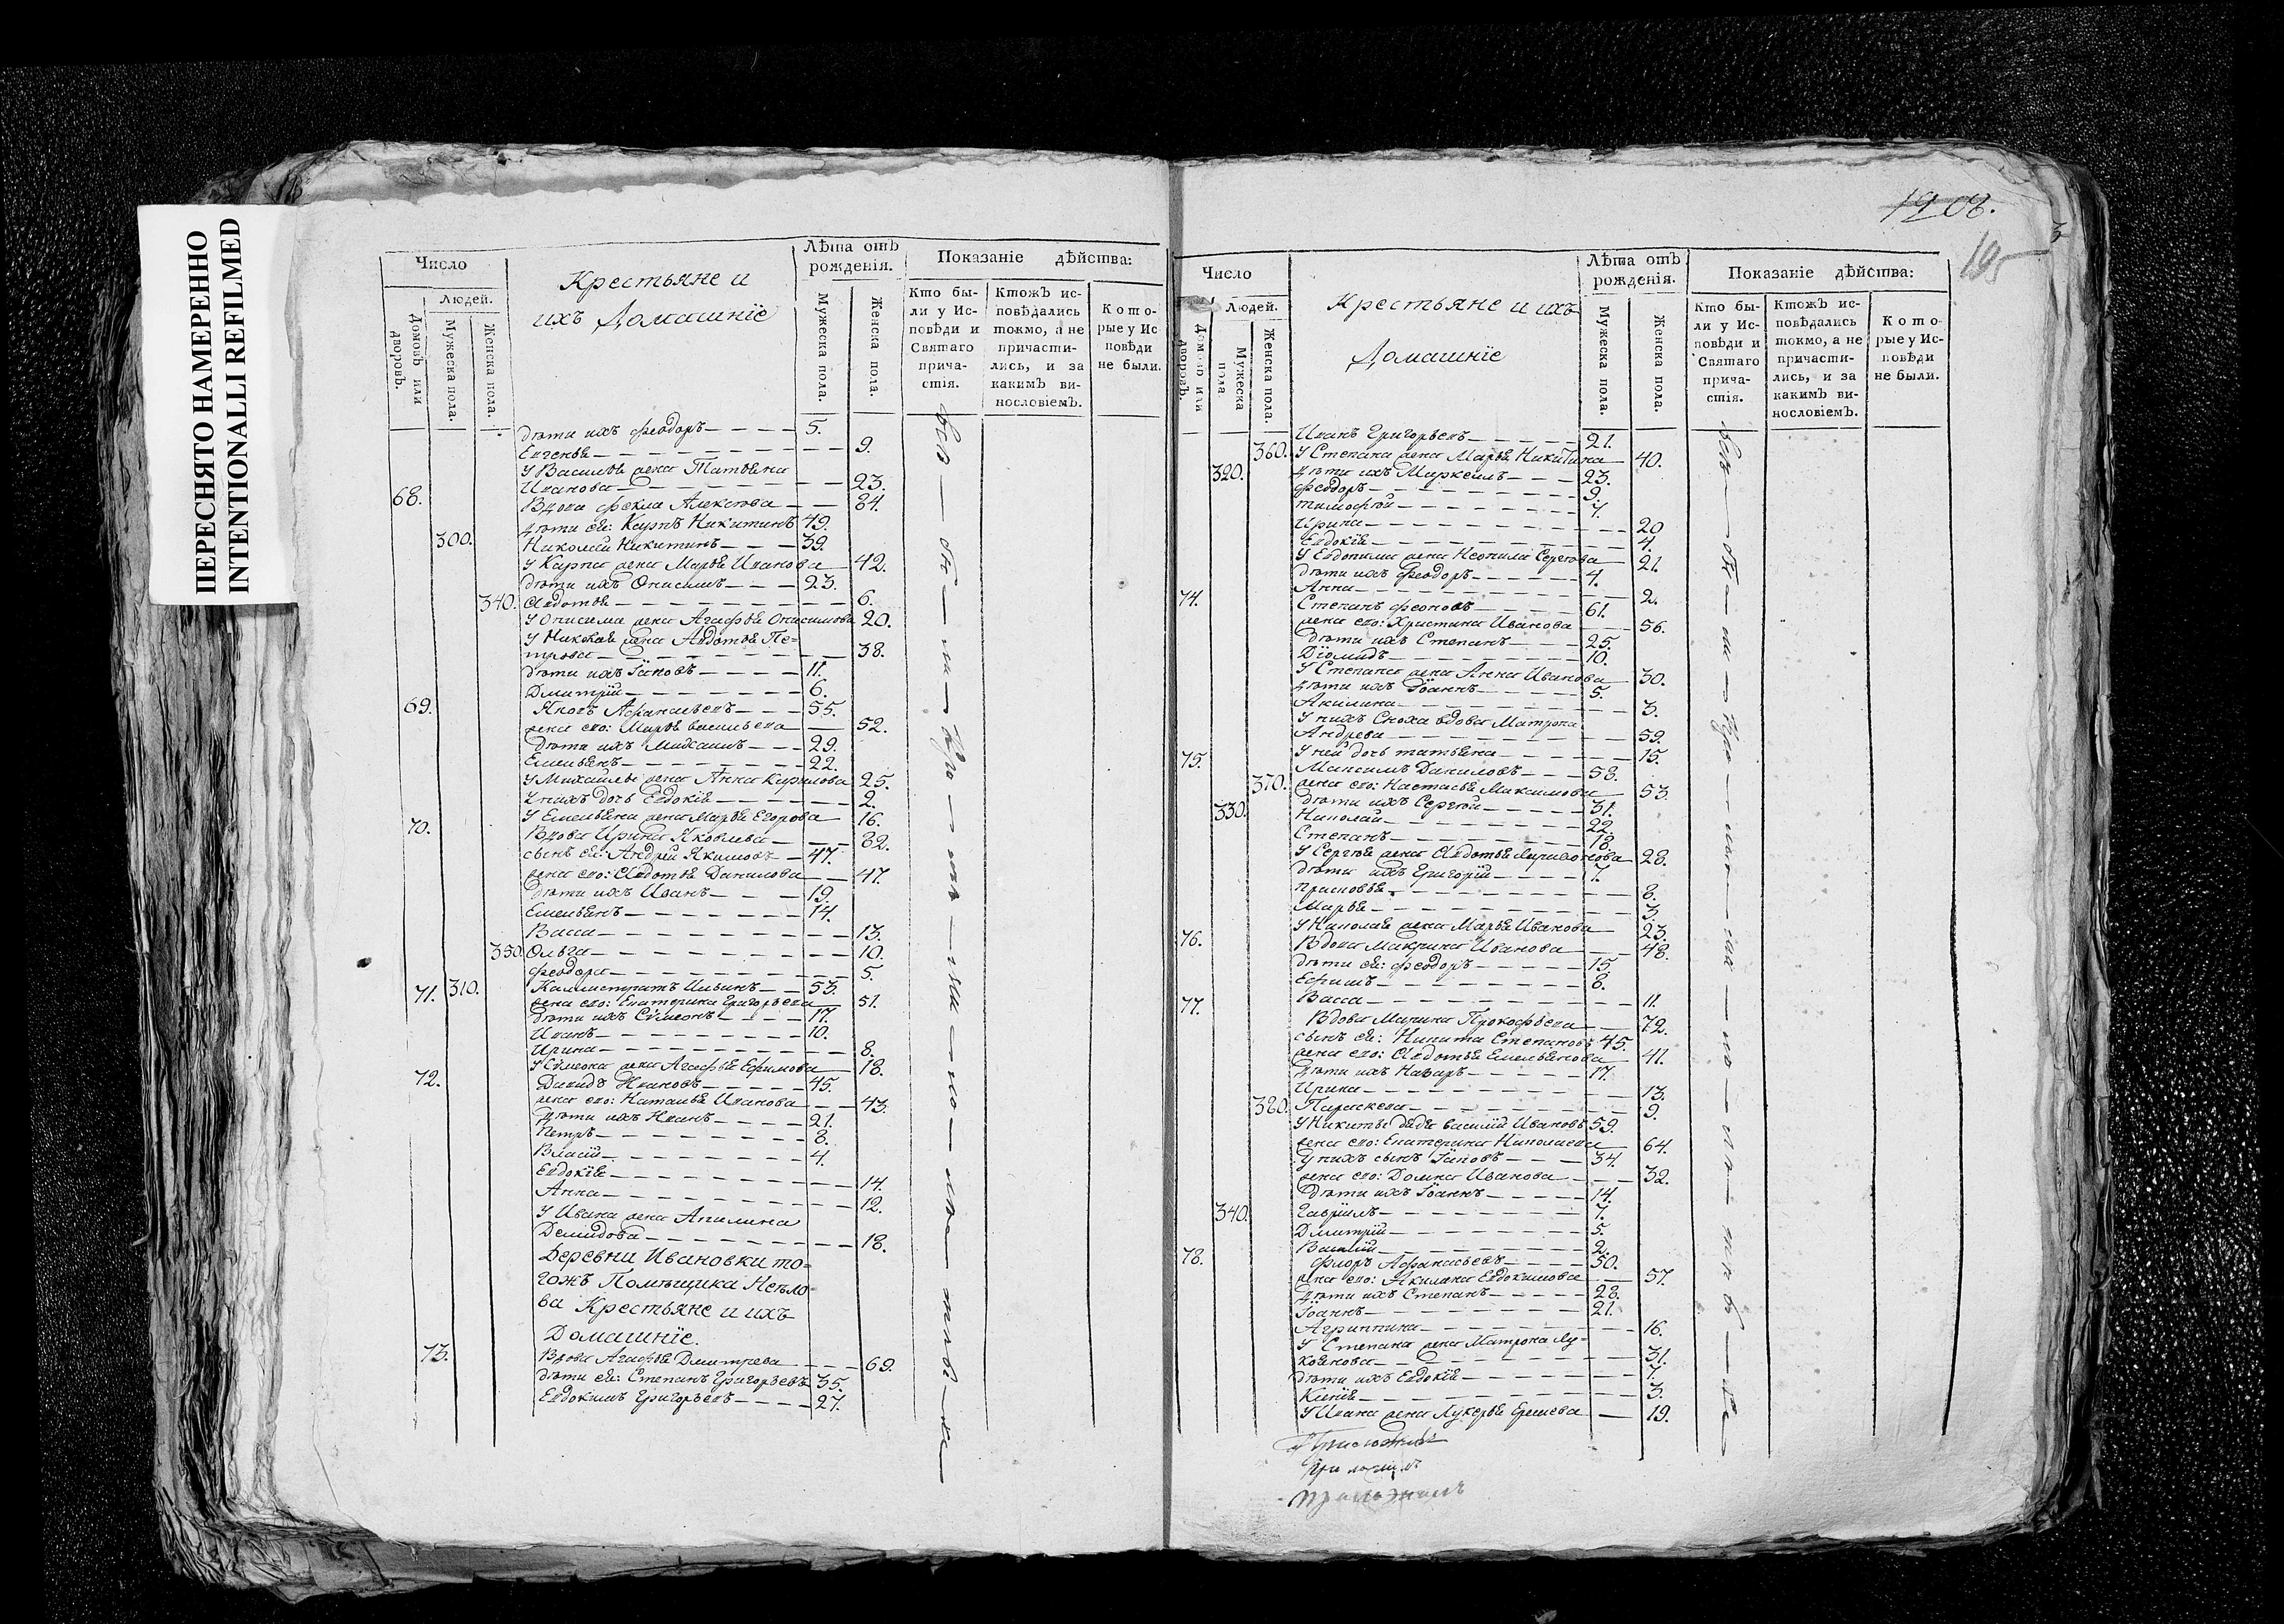 ПЕРЕСНЯТО НАМЕРЕННО
INTENTIONALLI REFILMED
Число
Людей.
Домовъ или дворовъ.
Мужеска пола.
Женска пола.
Крестьяне и
ихъ Домашніе
Лѣта отъ рожденія.
Мужеска пола.
Женска пола.
Показаніе дѣйства:
Кто были у Исповѣди и Святаго причастія.
Ктожъ исповѣдались токмо, а не причастились, и за какимъ винословіемъ.
Которые у Исповѣди не были.
дѣти ихъ Феодоръ 5.
Евгенья 9.
У Василья жена Татьяна
Иванова 23.
68. Вдова Фекла Алексѣева 84.
дѣти ея: Карпъ Никитинъ 49.
300. Николай Никитинъ 39.
У Карпа жена Марья Иванова 42.
дѣти ихъ Онисимъ 23.
340. Авдотья 6.
У Онисима жена Агафья Онисимова 20.
У Николая жена Авдотья Пе=
трова 38.
дѣти ихъ Іаковъ 11.
Дмитрій 6.
69. Яковъ Афанасьевъ 55.
жена его: Марья Васильева 52.
дѣти ихъ Михаилъ 29.
Емельянъ 22.
У Михайлы жена Анна Кирилова 25.
У нихъ дочь Евдокія 2.
У Емельяна жена Марья Егорова 16.
70. Вдова Ирина Яковлева 82.
сынъ ея: Андрей Якимовъ 47.
жена его: Авдотья Данилова 47.
дѣти ихъ Иванъ 19.
Емельянъ 14.
Васса 13.
350. Ольга 10.
Феодора 5.
71. 310. Каллистратъ Ильинъ 53.
жена его: Екатерина Григорьева 51.
дѣти ихъ Сѵмеонъ 17.
Иванъ 10.
Ирина 8.
У Сѵмеона жена Агафья Ефимова 18.
72. Давидъ Ивановъ 45.
жена его: Наталья Иванова 43.
дѣти ихъ Иванъ 21.
Петръ 8.
Власій 4.
Евдокія 14.
Анна 12.
У Ивана жена Акилина
Демидова 18.
Деревни Ивановки то=
гожъ Помѣщика Неѣло=
ва Крестьяне и ихъ
Домашніе.
73. Вдова Агафья Дмитрева 69.
дѣти ея: Степанъ Григорьевъ 35.
Евдокимъ Григорьевъ 27.
1208.
195
3
Число
Людей.
Домовъ или дворовъ.
Мужеска пола
Женска пола.
Крестьяне и ихъ
Домашніе
Лѣта отъ рожденія.
Мужеска пола.
Женска пола.
Показаніе дѣйства:
Кто были у Исповѣди и Святаго причастія.
Ктожъ исповѣдались токмо, а не причастились, и за какимъ винословіемъ.
Которые у Исповѣди не были.
Иванъ Григорьевъ 21.
360. У Степана жена Марья Никитина 40.
320. дѣти ихъ Маркелъ 23.
Феодоръ 9.
Тимофѣй 7.
Ирина 20
Евдокія 4.
У Евдокима жена Неонила Сергѣева 21.
дѣти ихъ Феодоръ 4.
Анна 2.
74. Степанъ Феоновъ 61.
жена его: Христина Иванова 56.
дѣти ихъ Степанъ 25.
Діомидъ 10.
У Степана жена Анна Иванова 30.
дѣти ихъ Іоаннъ 5.
Акилина 3.
У нихъ Сноха вдова Матрона
Андрева 59.
У ней дочь Татьяна 15.
75. Максимъ Даниловъ 58.
370. жена его: Настасья Максимова 53.
330. дѣти ихъ Сергѣй 31.
Николай 22.
Степанъ 18.
У Сергѣя жена Авдотья Ларивонова 28.
дѣти ихъ Григорій 7.
Прасковья 8.
Марья 3.
У Николая жена Марья Иванова 23.
76. Вдова Макрина Иванова 48.
дѣти ея: Феодоръ 15.
Ефимъ 8.
Васса 11.
77. Вдова Марина Прокофьева 72.
сынъ ея: Никита Степановъ 45.
жена его: Авдотья Емельянова 41.
дѣти ихъ Назаръ 17.
Ирина 13.
380. Параскева 9.
У Никиты дядя Василій Ивановъ 59.
жена его: Екатерина Николаева 64.
У нихъ сынъ Іаковъ 34.
жена его: Домна Иванова 32.
дѣти ихъ Іоаннъ 14.
340. Гавріилъ 7.
Дмитрій 5.
Василій 2.
78. Флоръ Афанасьевъ 50.
жена его: Акилина Евдокимова 57.
дѣти ихъ Степанъ 28.
Іоаннъ 21.
Агриппина 16.
У Степана жена Матрона Лу=
коянова 31.
дѣти ихъ Евдокія 7.
Ксенія 3.
У Ивана жена Лукерья Ершева 19.